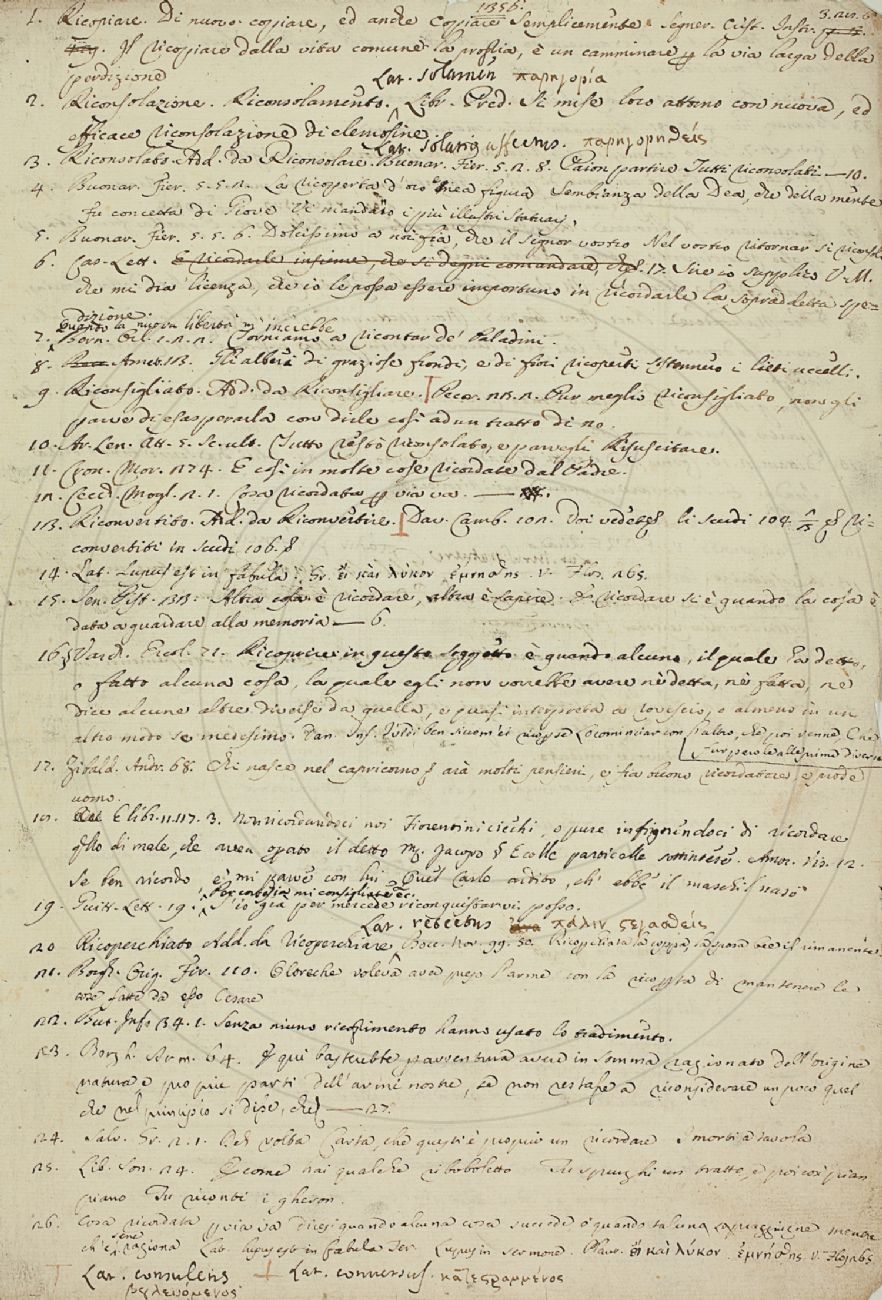 1356.
1. Ricopiare. Di nuovo copiare, ed anche Copiare semplicemente. Segner. Crist. Instr. 3. 
Il ricopiare dalla vita comune la propria, è un camminare p la via larga della
perdizione
Lat. solamen παρηγορία
2. Riconsolazione. Riconsolamento. Libr. Pred. Si mise loro attorno con nuova, ed
efficace riconsolazione di elemosine.
Lat. solatio affectus. παρηγορηθείς
3. Riconsolato. Add. da Riconsolare. Buonar. Fier. 5. 2. 8. partire Tutti riconsolati. — 10.
4. Buonar. Fier. 5. 5. 2. La ricoperta d'oro figura Sembianza della Dea, che della mente
Fu concetta di Giove i più illustri statuarj,
5. Buonar. Fier. 5. 5. 6. Dolcissimo a noi fia, che il signor vostro Nel vostro ritornar si
6. Cas. Lett. E ricordarle insieme, che si degni comandare, 17. Sire io supplico V. M.
che mi dia licenza, che io le possa essere importuno in ricordarle la sopraddetta spe=
dizione.
Quanto la nuova libertà m'increbbe
7. Bern. Orl. 1. 2. 2. Torniamo a ricontar de' Paladini.
8. Amet. 13. Gli albori di graziose frondi, e di fiori ricoperti sostennero i lieti uccelli.
9. Riconsigliato. Add. da Riconsigliare. Pecor. 12. 2. Pur meglio riconsigliato, non gli
parve di esasperarla con dirle così ad un tratto di no.
10. Ar. Len. Att. 5. sc. ult. Tutto restò riconsolato, e parvegli Risuscitare.
11. Cron. Mor. 274. E così in molte cose ricordate dal Padre.
12. Cecch. Mogl. 2. 1. Cosa ricordata p via va. —
13. Riconvertito. Ad. da Riconvertire. Dav. Camb. 102. Doi li scudi 104 Ri=
convertiti in scudi 106.
14. Lat. Lupus est in fabula. Gr. εἰ καὶ λύκου ἐμνήσθης. v. Flos. 265.
15. Sen. Pist. 133. Altra cosa è ricordare, altra è sapere. Ricordare si è quando la cosa è
data a guardare alla memoria — 6.
16. Varch. Ercol. 71. Ricoprire in questo soggetto è quando alcuno, il quale ha detto,
o fatto alcuna cosa, la quale egli non vorrebbe avere nè detta, nè fatta, ne
dice alcune altre diverse da quella, e quasi interpreta a rovescio, o almeno in un
altro modo se medesimo. Dan. Inf. ben ricoperse Lo cominciar con l'altro, che poi venne Che
fur parole alle prime diverse
17. Zibald. Andr. 68. Chi nasce nel capricorno arà molti pensieri, e fia buono ricordatore, e prode
uomo.
18. E libr. 11. 117. 3. Non ricordandoci noi Fiorentini ciechi, o pure infignendoci di ricordare
quello di male, che avea oprato il detto M. Jacopo Amor. Vis. 12.
Se ben ricordo e' mi parve con lui Quel Carlo ardito, ch' ebbe il maschil naso
Per cortesia mi consigliate ec.
19. Guitt. Lett. 19. S'io già per mercede riconquistarvi posso.
Lat. retectus πάλιν
20 Ricoperchiato Add. da Ricoperchiare Bocc. Nov. 99. 50. Ricoperchiata la coppa, la sposa bee il rimanente.
21. Borgh. Orig. Fir. 110. Oloreche voleva aver preso l'arme con la ricoperta di mantenere le
cose fatte da esso Cesare
22. But. Inf. 34. 1. Senza niuno ricoprimento hanno usato lo tradimento.
23. Borgh. Arm. 64. E qui basterebbe pavventura avere in somma ragionato dell'origine
natura e proprie parti dell'armi nostre, se non restasse a riconsiderare un poco quel
che nel principio si disse, che — 27.
24. Salv. Gr. 2. 1. volta Carta, che questi è proprio un ricordare I morti a tavola
25. Lib. Son. 24. E come hai qualche ribobletto Tu spunghi un tratto, e poi così pian
piano Tu riconti i gheron.
26. Cosa ricordata p via va dicesi quando alcuna cosa succede o quando taluna sopraggiugne mentre
che se ne ragiona Lat. lupus est in fabula Ter. Lupus in sermone. Plaut. εἰ καὶ λύκου ἐμνήσθης. v.
Lat. consulens Lat. conversus. κατεστραμμένος
βουλευόμενος